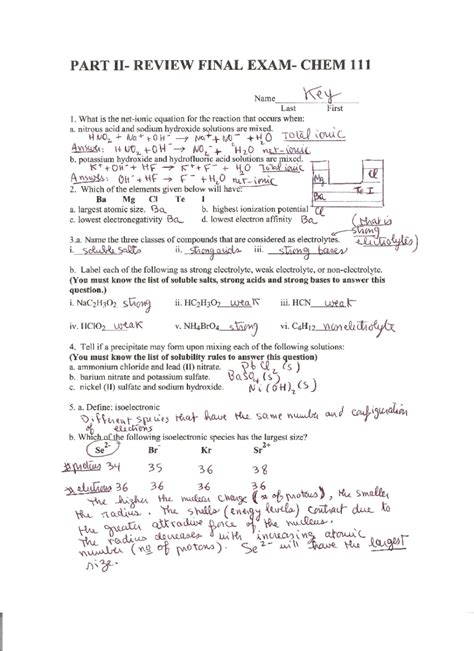 PART II- REVIEW FINAL EXAM- CHEM 111
Name Key
Last First
1. What is the net-ionic equation for the reaction that occurs when:
a. nitrous acid and sodium hydroxide solutions are mixed.
HNO₂ + Na⁺ + OH⁻ → Na⁺ + NO₂⁻ + H₂O Total ionic
Answer: HNO₂ + OH⁻ → NO₂⁻ + H₂O net-ionic
b. potassium hydroxide and hydrofluoric acid solutions are mixed.
K⁺ + OH⁻ + HF → K⁺ + F⁻ + H₂O Total ionic
Answer: OH⁻ + HF → F⁻ + H₂O net-ionic
Mg Cl
2. Which of the elements given below will have:
Te I
Ba Mg Cl Te I
Ba
a. largest atomic size. Ba b. highest ionization potential Cl
c. lowest electronegativity Ba d. lowest electron affinity Ba
(what is strong electrolytes)
3.a. Name the three classes of compounds that are considered as electrolytes.
i. soluble salts ii. strong acids iii. strong bases
b. Label each of the following as strong electrolyte, weak electrolyte, or non-electrolyte.
(You must know the list of soluble salts, strong acids and strong bases to answer this
question.)
i. NaC₂H₃O₂ strong ii. HC₂H₃O₂ weak iii. HCN weak
iv. HClO₂ weak v. NH₄BrO₄ strong vi. C₆H₁₂ nonelectrolyte
4. Tell if a precipitate may form upon mixing each of the following solutions:
(You must know the list of solubility rules to answer this question)
a. ammonium chloride and lead (II) nitrate. PbCl₂(s)
b. barium nitrate and potassium sulfate. BaSO₄(s)
c. nickel (II) sulfate and sodium hydroxide. Ni(OH)₂(s)
5. a. Define: isoelectronic
Different species that have the same number and configuration
of electrons
b. Which of the following isoelectronic species has the largest size?
Se²⁻ Br⁻ Kr Sr²⁺
protons 34 35 36 38
electrons 36 36 36 36
The higher the nuclear charge (# of protons), the smaller
the radius. The shells (energy levels) contract due to
the greater attractive force of the nucleus.
The radius decreases with increasing atomic
number (no of protons). Se²⁻ will have the largest
size.